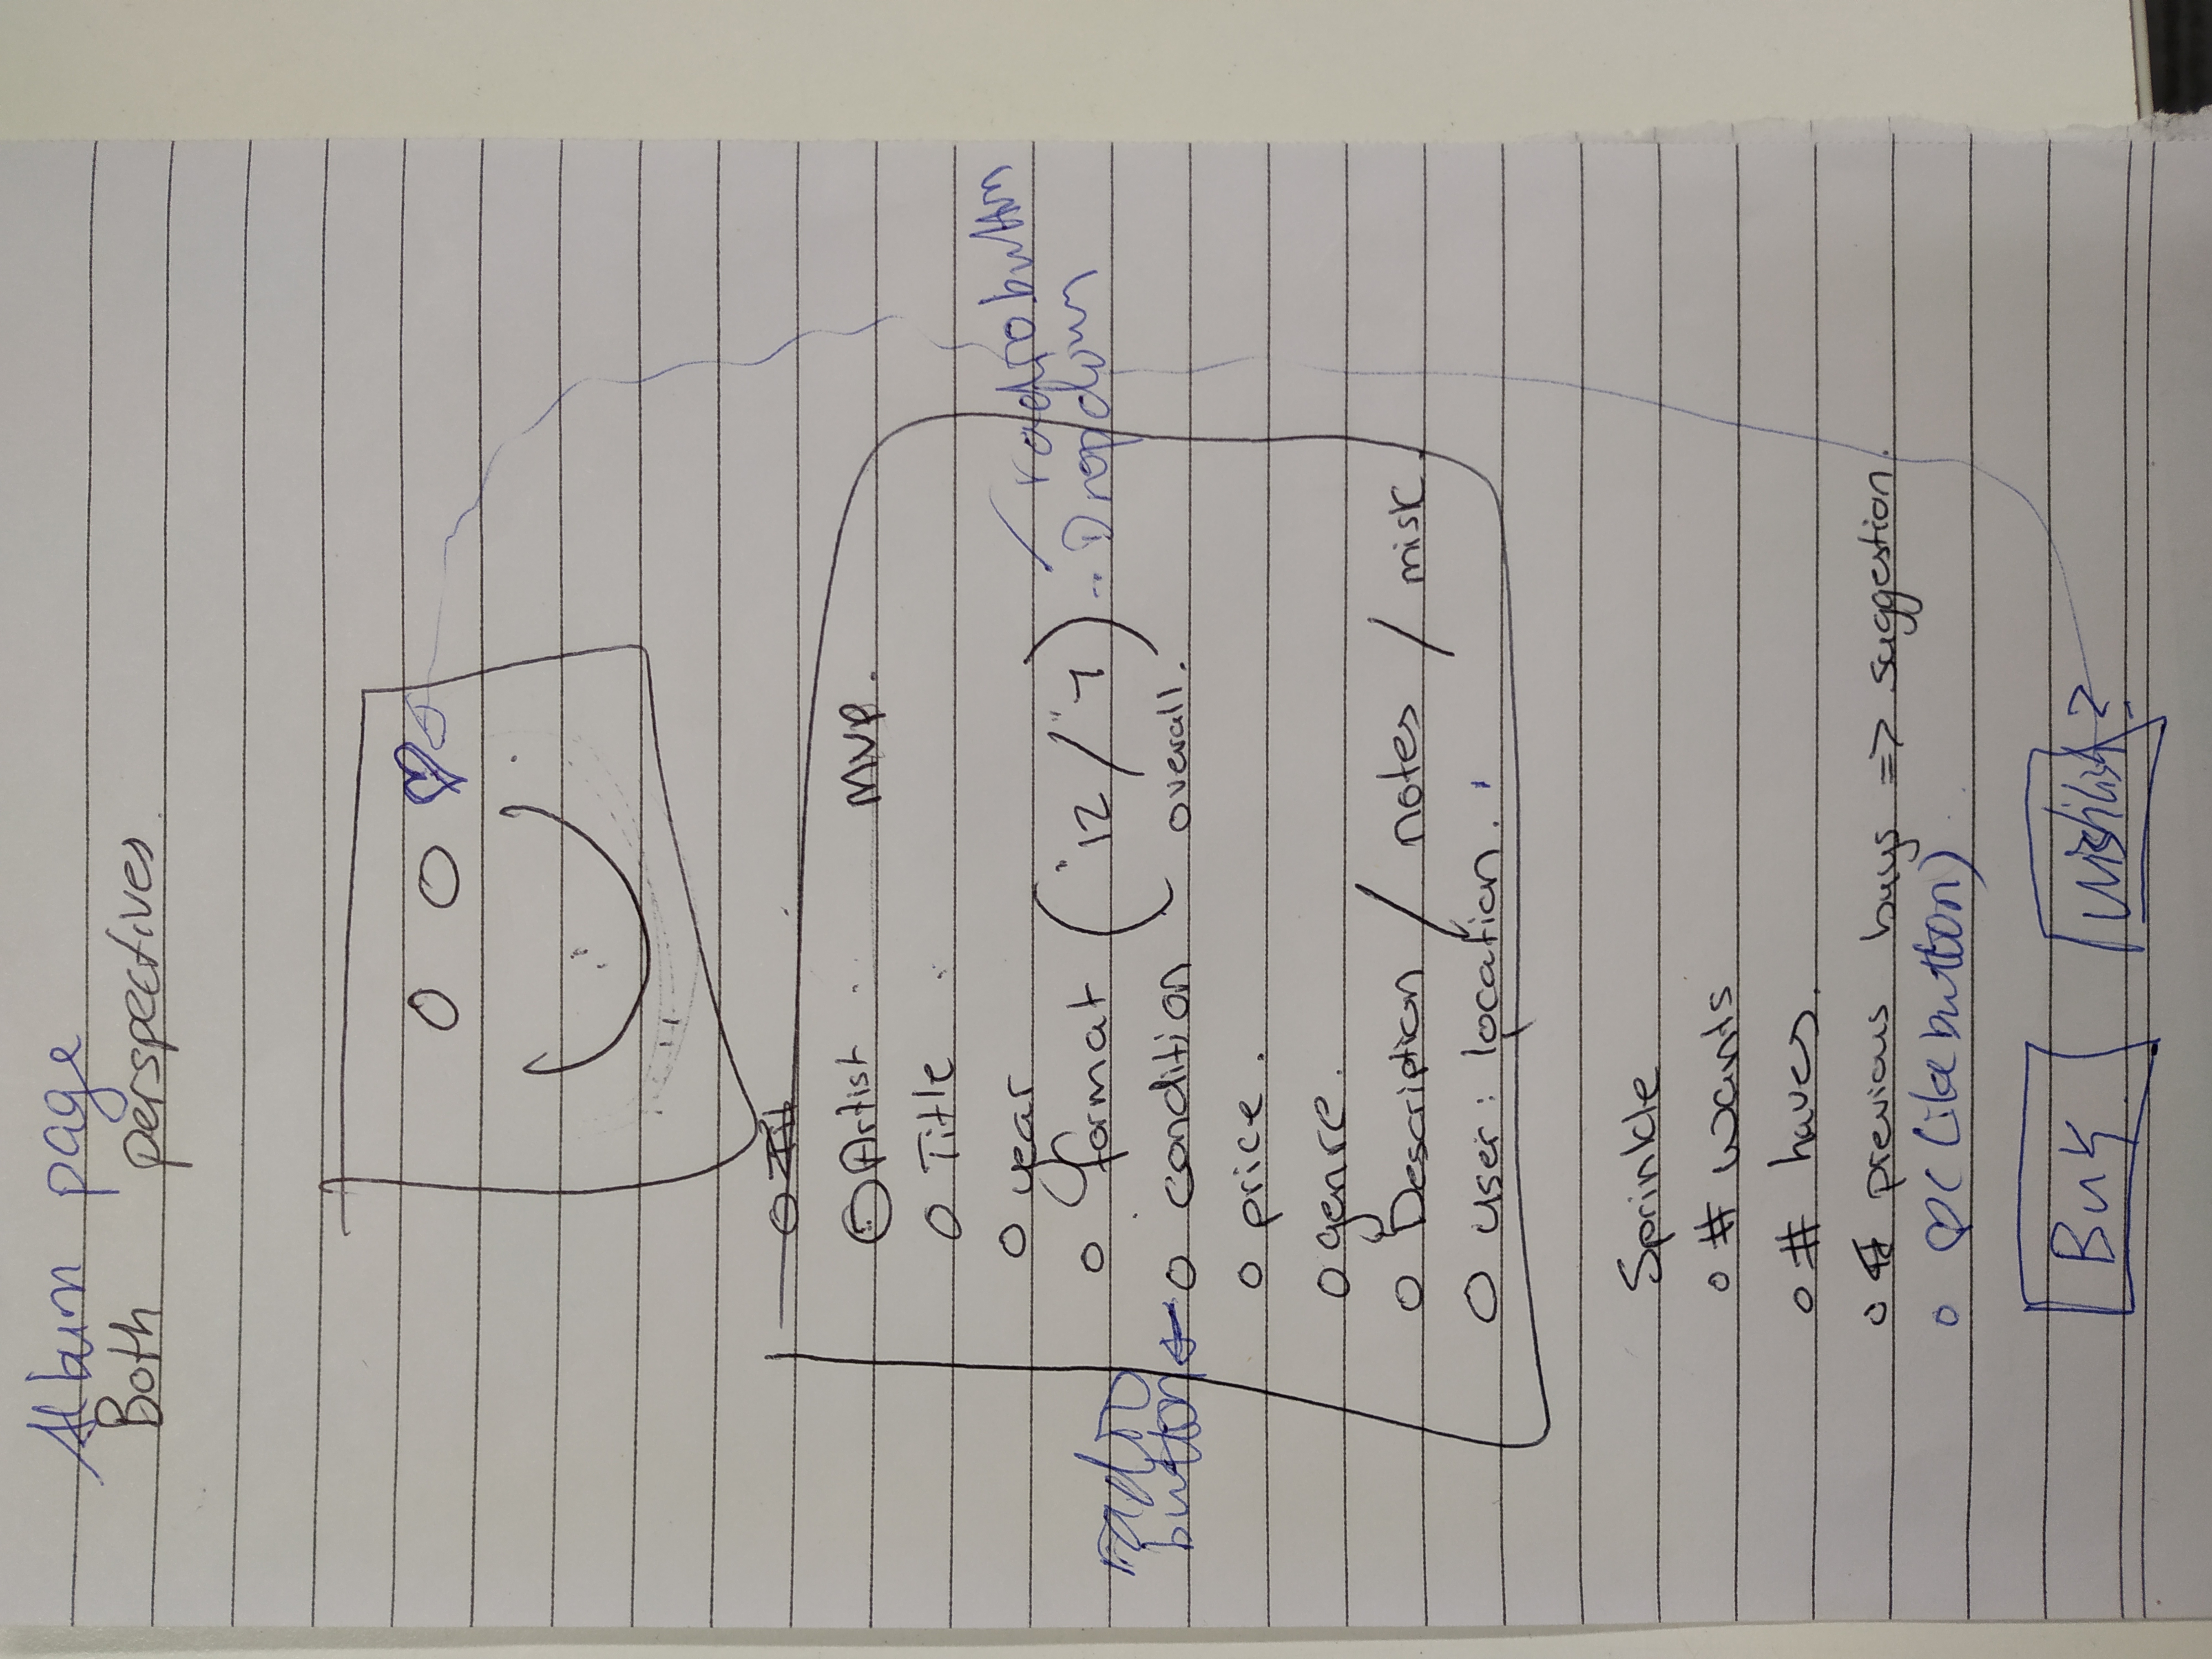 Album page
Both perspectives.
Artist MVP.
Title
year
radio button
format ("12 / "7) Dropdown
radio
button
condition overall.
price.
genre.
Description / notes / misk.
user: location.
Sprinkle
# wants
# haves.
# previous buys => suggestion.
♡ (Like button)
Buy
wishlist ?